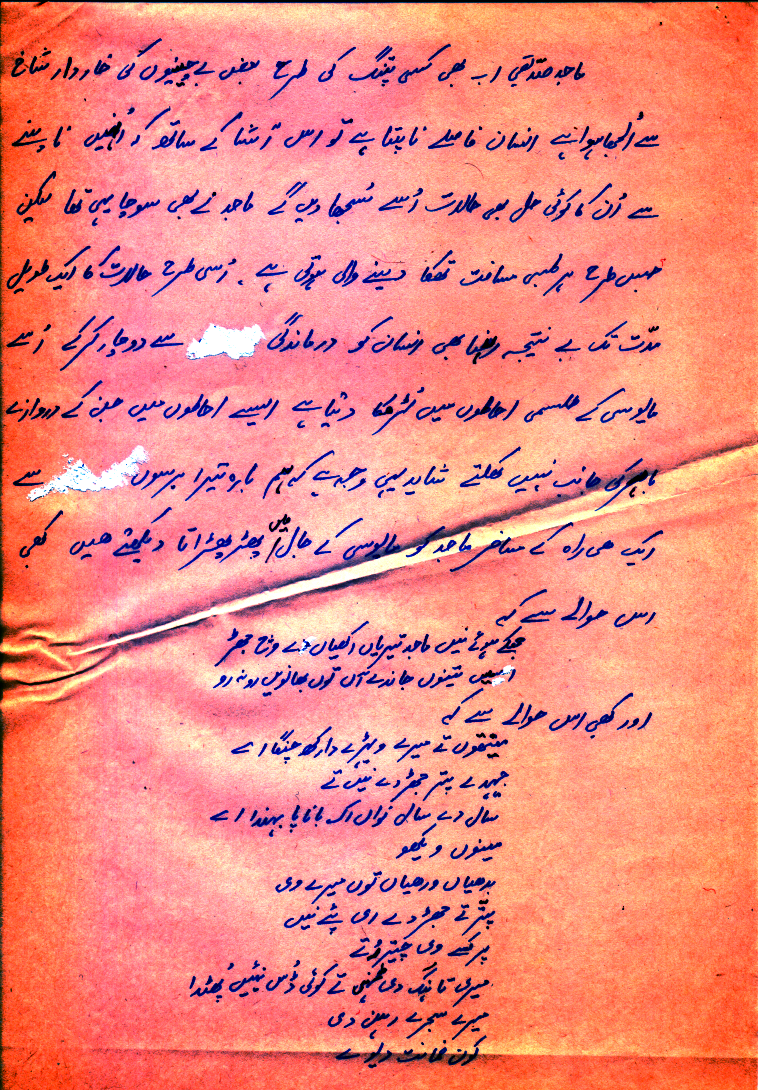 ماجد صدّیقی اب بھی کسی پتنگ کی طرح بعض بے چینیوں کی خاردار شاخ
سے اُلجھا ہوا ہے انسان فاصلے ناپتا ہے تو اس آشا کے ساتھ کہ اُنہیں ناپنے
سے اُن کا کوئی حل بھی حالات اُسے سُجھا دیں گے ماجد نے بھی سوچا یہی تھا لیکن
جس طرح ہر لمبی مسافت تھکا دینے والی ہوتی ہے۔ اُسی طرح حالات کا ایک طویل
مدّت تک بے نتیجہ رہنا بھی انسان کو درماندگی سے دوچار کر کے اُسے
مایوسی کے طلسمی احاطوں میں لُڑھکا دیتا ہے ایسے احاطوں میں جن کے دروازے
باہر کی جانب نہیں کھلتے شاید یہی وجہ ہے کہ ہم بارہ تیرا برسوں سے
ایک ھی راہ کے مسافر ماجد کو مایوسی کے جال میں پھڑپھڑاتا دیکھتے ھیں کبھی
اس حوالے سے کہ
جھکے ہوئے نیں ماجد تیریاں اکھیاں دے وچ جھڑ
اسیں تینوں جاندے آں توں بھانویں رو نہ رو
اور کبھی اس حوالے سے کہ
میتھوں تے میرے ویہڑے دا رکھ چنگا اے
جیہدے پتر جھڑدے نیں تے
سال دے سال نواں اک بانا پا بہندا اے
مینوں ویکھو
ورھیاں توں میرے وی
پتّر تے جھڑدے ای پئے نیں
پر کسے وی چیتر رُتے
میری تاہنگ دی ٹہنی تے کوئی ڈُس نئیں پُھٹدا
میرے سجرے رہن دی
کون ضمانت دیوے